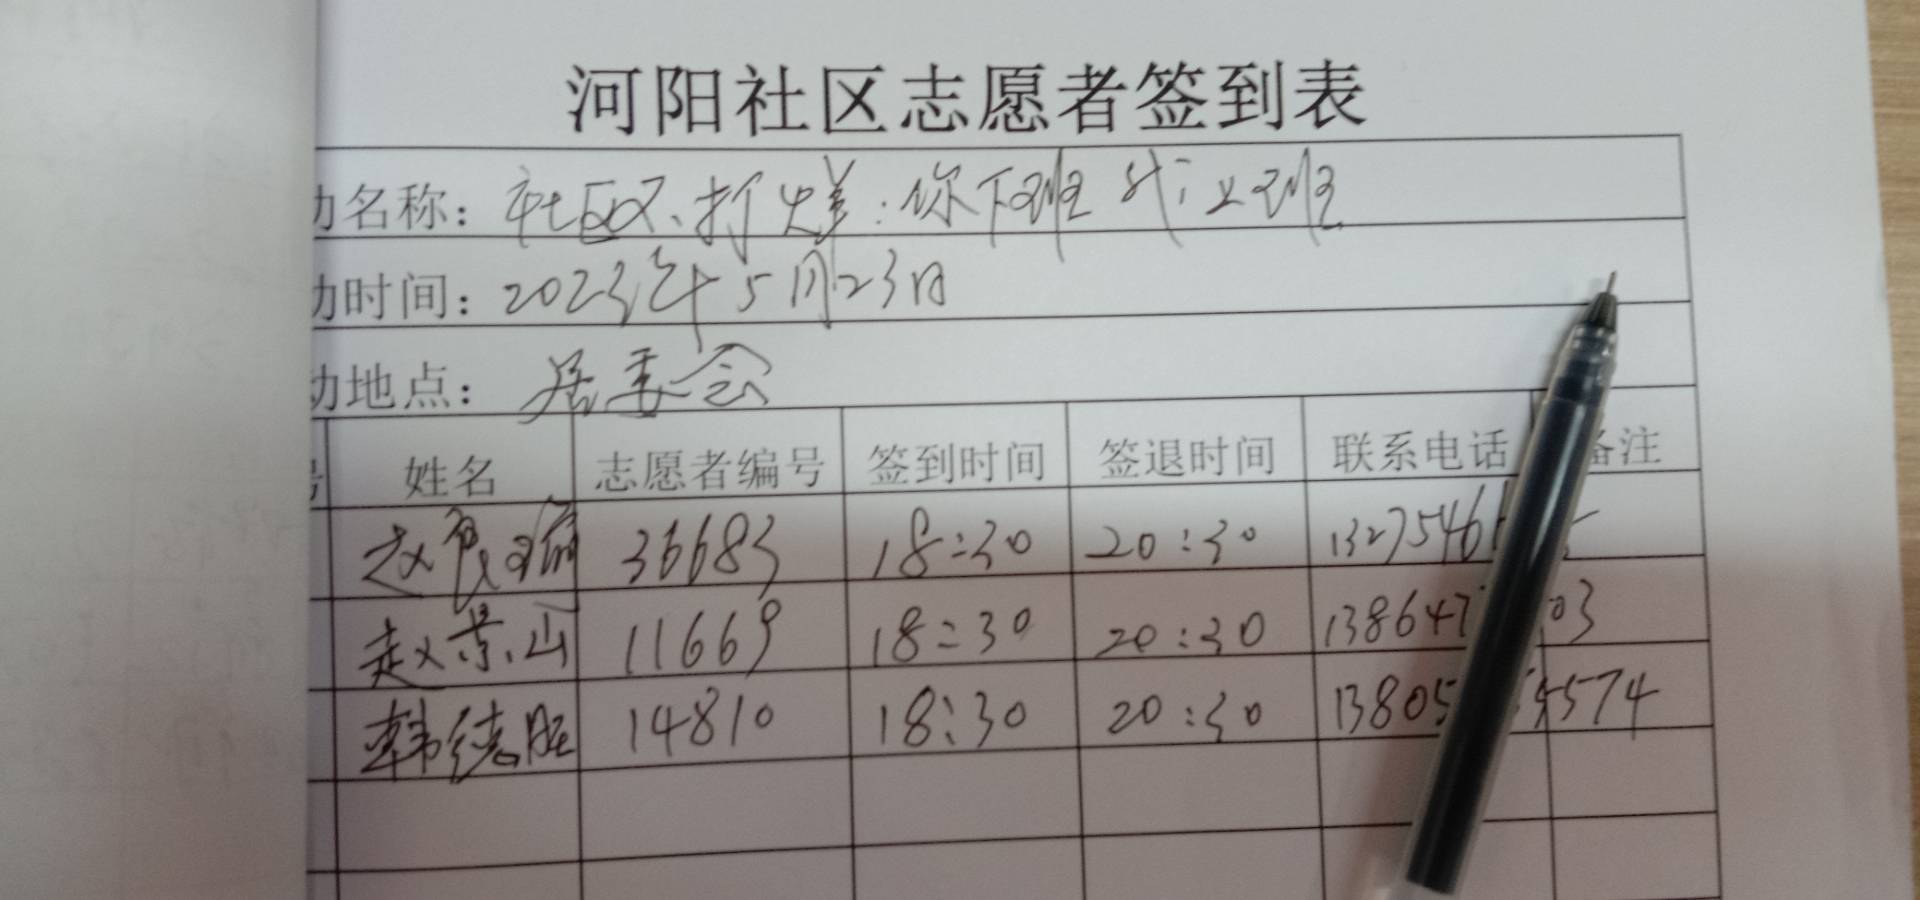 河阳社区志愿者签到表
动名称：社区不打烊：你下班 我上班
动时间：2023年5月23日
动地点：居委会
号 姓名 志愿者编号 签到时间 签退时间 联系电话 备注
赵 36683 18:30 20:30 1327546
赵景山 11669 18:30 20:30 138647 03
韩德胜 14810 18:30 20:30 13805 4574